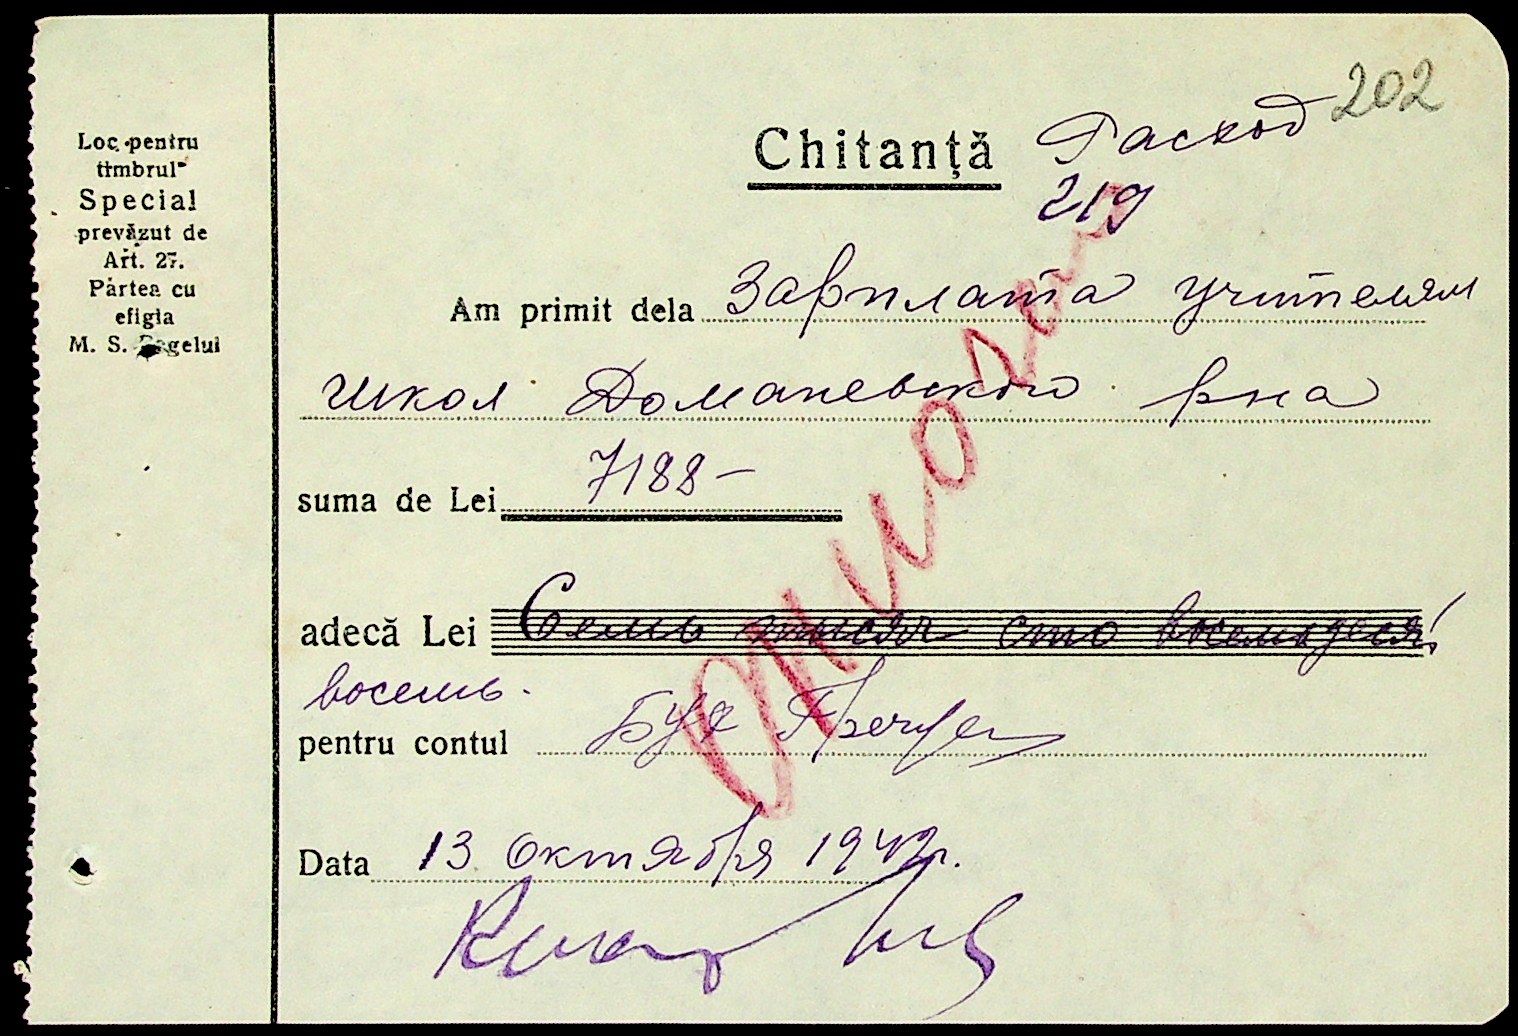 202
Loc pentru
timbrul
Special
prevăzut de
Art. 27.
Partea cu
efigia
M. S. Regelui
Chitanță Расход
219
Am primit dela Зарплата учителям
школ Доманевского р-на
suma de Lei 7188-
adecă Lei Семь тысяч сто восемьдесят
восемь.
pentru contul Бух
Data 13 октября 1942г.